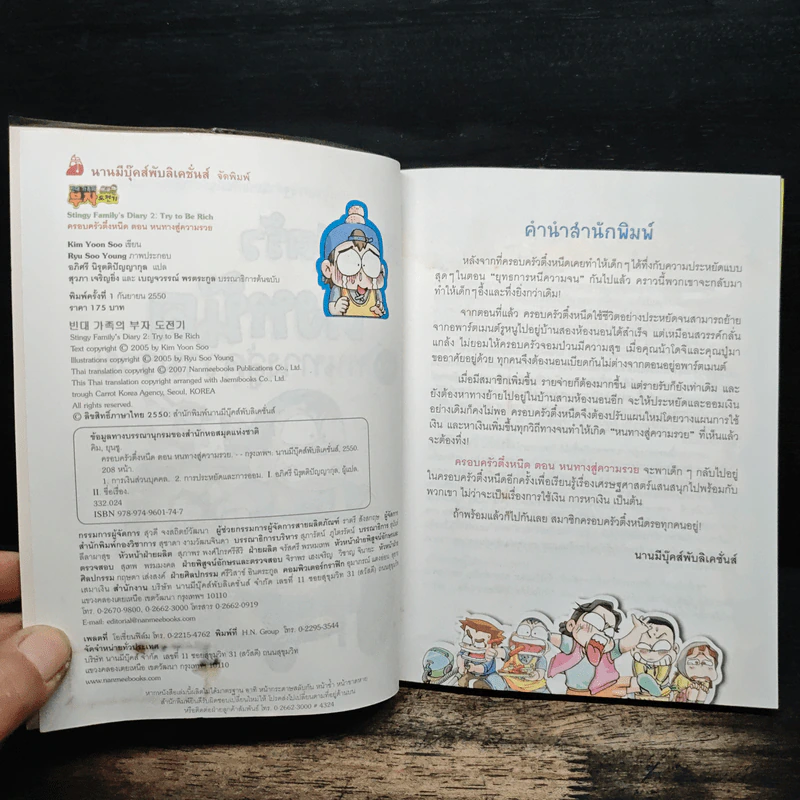 นานมีบุ๊คส์พับลิเคชั่นส์ จัดพิมพ์
부자 도전기
Stingy Family's Diary 2: Try to Be Rich
ครอบครัวตึ๋งหนืด ตอน หนทางสู่ความรวย
Kim Yoon Soo เขียน
Ryu Soo Young ภาพประกอบ
อภิศรี นิรุตติปัญญากุล แปล
สุวภา เจริญยิ่ง และ เบญจวรรณ พรตระกูล บรรณาธิการต้นฉบับ
พิมพ์ครั้งที่ 1 กันยายน 2550
ราคา 175 บาท
빈대 가족의 부자 도전기
Stingy Family's Diary 2: Try to Be Rich
Text copyright © 2005 by Kim Yoon Soo
Illustrations copyright © 2005 by Ryu Soo Young
Thai translation copyright © 2007 Nanmeebooks Publications Co., Ltd.
This Thai translation copyright arranged with Jaemibooks Co., Ltd.
trough Carrot Korea Agency, Seoul, KOREA
All rights reserved.
© ลิขสิทธิ์ภาษาไทย 2550: สำนักพิมพ์นานมีบุ๊คส์พับลิเคชั่นส์
ข้อมูลทางบรรณานุกรมของสำนักหอสมุดแห่งชาติ
คิม, ยุนซู.
ครอบครัวตึ๋งหนืด ตอน หนทางสู่ความรวย. -- กรุงเทพฯ: นานมีบุ๊คส์พับลิเคชั่นส์, 2550.
208 หน้า.
1. การเงินส่วนบุคคล. 2. การประหยัดและการออม. I. อภิศรี นิรุตติปัญญากุล, ผู้แปล.
II. ชื่อเรื่อง.
332.024
ISBN 978-974-9601-74-7
กรรมการผู้จัดการ สุวดี จงสถิตย์วัฒนา ผู้ช่วยกรรมการผู้จัดการสายผลิตภัณฑ์
สำนักพิมพ์กองวิชาการ สุธาดา งามวัฒนจินดา บรรณาธิการบริหาร
หัวหน้าฝ่ายผลิต สุภาพร พงศ์ไกรศรีสิริ ฝ่ายผลิต หัวหน้าฝ่ายพิสูจน์อักษรและตรวจสอบ
ตรวจสอบ สุเทพ พรมมงคล ฝ่ายพิสูจน์อักษรและตรวจสอบ
ศิลปกรรม ฝ่ายศิลปกรรม คอมพิวเตอร์กราฟิก
สำนักงาน บริษัท นานมีบุ๊คส์ จำกัด เลขที่ 11 ซอยสุขุมวิท 31 (สวัสดี) ถนนสุขุมวิท
แขวงคลองเตยเหนือ เขตวัฒนา กรุงเทพฯ 10110
โทร. 0-2670-9800, 0-2662-3000 โทรสาร 0-2662-0919
E-mail: editorial@nanmeebooks.com
เพลตที่ โอเชี่ยนฟิล์ม โทร. 0-2215-4762 พิมพ์ที่ H.N. Group โทร. 0-2295-3544
จัดจำหน่ายทั่วประเทศ
บริษัท นานมีบุ๊คส์ จำกัด เลขที่ 11 ซอยสุขุมวิท 31 (สวัสดี) ถนนสุขุมวิท
แขวงคลองเตยเหนือ เขตวัฒนา กรุงเทพฯ 10110
www.nanmeebooks.com
หากหนังสือเล่มนี้ผลิตไม่ได้มาตรฐาน อาทิ หน้ากระดาษสลับกัน หน้าซ้ำ หน้าขาดหาย
สำนักพิมพ์ยินดีรับผิดชอบเปลี่ยนใหม่ให้ โปรดส่งไปเปลี่ยนตามที่อยู่ด้านบน
หรือติดต่อฝ่ายลูกค้าสัมพันธ์ โทร. 0-2662-3000 # 4324
คำนำสำนักพิมพ์
หลังจากที่ครอบครัวตึ๋งหนืดเคยทำให้เด็กๆ ได้ทึ่งกับความประหยัดแบบ
สุดๆ ในตอน "ยุทธการหนีความจน" กันไปแล้ว คราวนี้พวกเขาจะกลับมา
ทำให้เด็กๆ อึ้งและทึ่งยิ่งกว่าเดิม!
จากตอนที่แล้ว ครอบครัวตึ๋งหนืดใช้ชีวิตอย่างประหยัดจนสามารถย้าย
จากอพาร์ตเมนต์รูหนูไปอยู่บ้านสองห้องนอนได้สำเร็จ แต่เหมือนสวรรค์กลั่น
แกล้ง ไม่ยอมให้ครอบครัวจอมป่วนมีความสุข เมื่อคุณน้าโดจีและคุณปู่มา
ขออาศัยอยู่ด้วย ทุกคนจึงต้องนอนเบียดกันไม่ต่างจากตอนอยู่อพาร์ตเมนต์
เมื่อมีสมาชิกเพิ่มขึ้น รายจ่ายก็ต้องมากขึ้น แต่รายรับก็ยังเท่าเดิม และ
ยังต้องหาทางย้ายไปอยู่ในบ้านสามห้องนอนอีก จะให้ประหยัดและออมเงิน
อย่างเดิมก็คงไม่พอ ครอบครัวตึ๋งหนืดจึงต้องปรับแผนใหม่โดยวางแผนการใช้
เงิน และหาเงินเพิ่มขึ้นทุกวิถีทางจนทำให้เกิด "หนทางสู่ความรวย" ที่เห็นแล้ว
จะต้องทึ่ง!
ครอบครัวตึ๋งหนืด ตอน หนทางสู่ความรวย จะพาเด็กๆ กลับไปอยู่
ในครอบครัวตึ๋งหนืดอีกครั้งเพื่อเรียนรู้เรื่องเศรษฐศาสตร์แสนสนุกไปพร้อมกับ
พวกเขา ไม่ว่าจะเป็นเรื่องการใช้เงิน การหาเงิน เป็นต้น
ถ้าพร้อมแล้วก็ไปกันเลย สมาชิกครอบครัวตึ๋งหนืดรอทุกคนอยู่!
นานมีบุ๊คส์พับลิเคชั่นส์